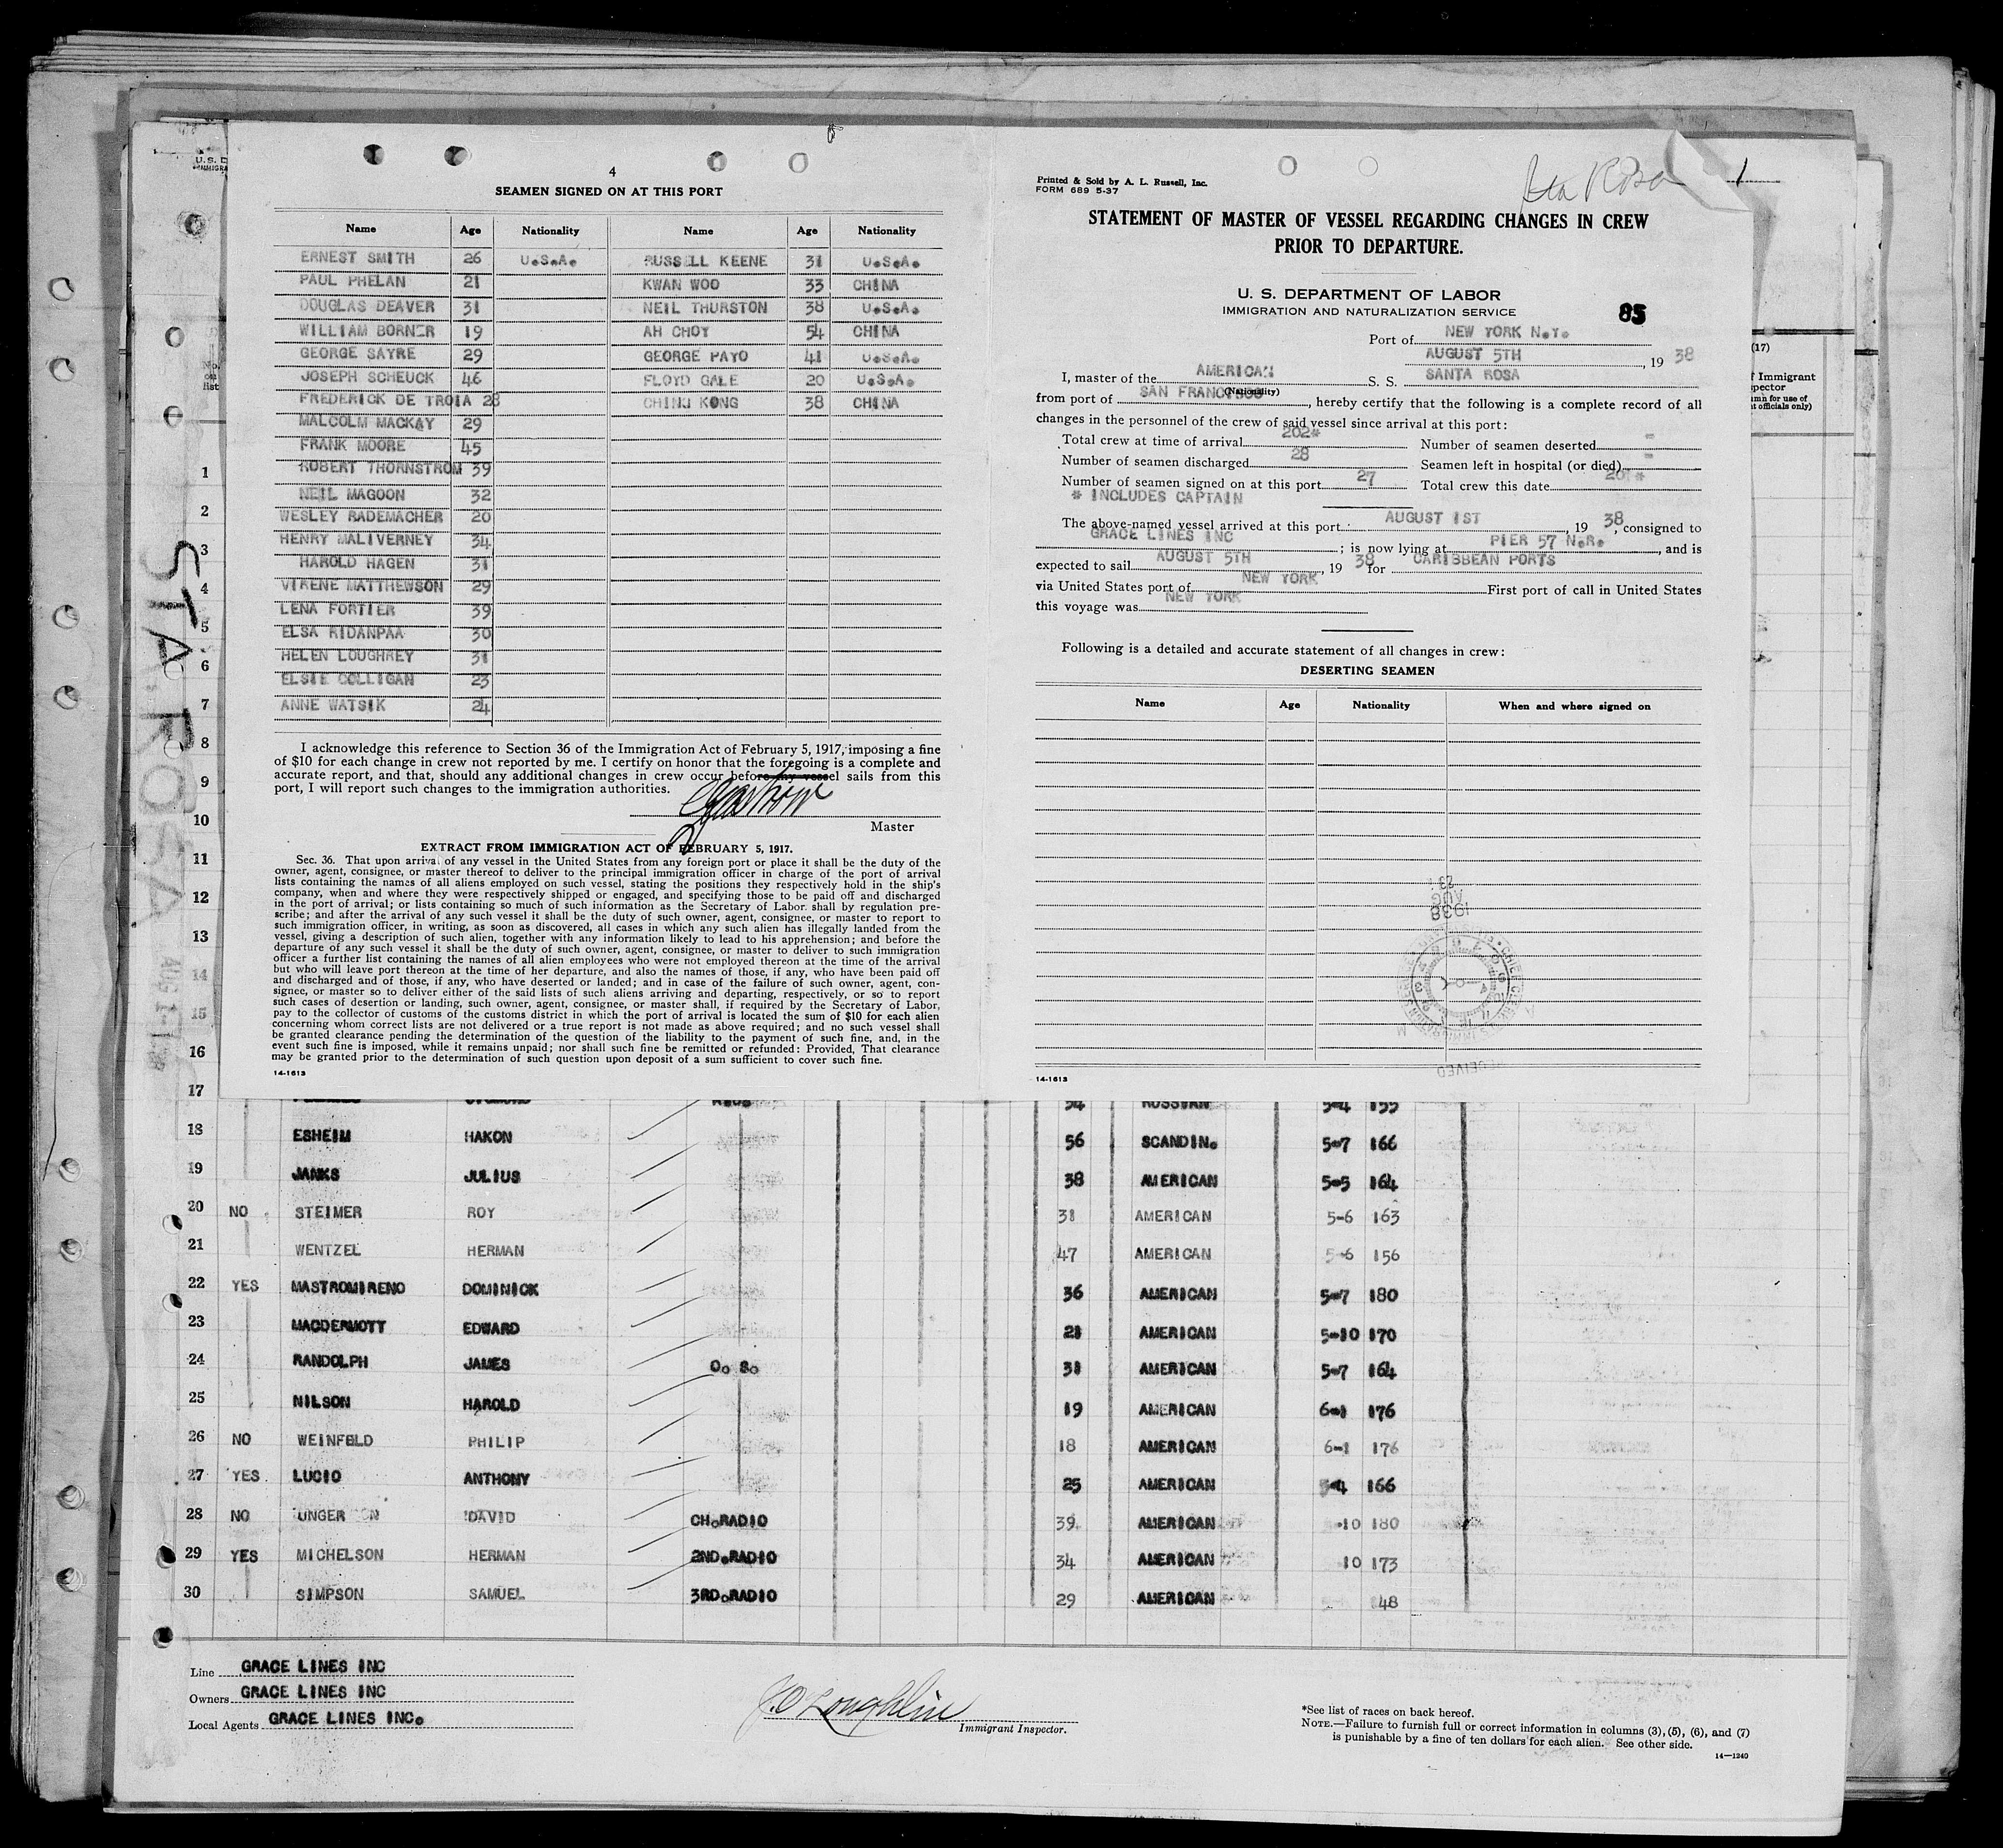 4
SEAMEN SIGNED ON AT THIS PORT
Name Age Nationality Name Age Nationality
ERNEST SMITH 26 U.S.A. RUSSELL KEENE 31 U.S.A.
PAUL PHELAN 21 KWAN WOO 33 CHINA
DOUGLAS DEAVER 31 NEIL THURSTON 38 U.S.A.
WILLIAM BORNER 19 AH CHOY 54 CHINA
GEORGE SAYRE 29 GEORGE PAYO 41 U.S.A.
JOSEPH SCHEUCK 46 FLOYD GALE 20 U.S.A.
FREDERICK DE TROIA 28 CHING KONG 38 CHINA
MALCOLM MACKAY 29
FRANK MOORE 45
ROBERT THORNSTROM 39
NEIL MAGOON 32
WESLEY RADEMACHER 20
HENRY MALIVERNEY 34
HAROLD HAGEN 31
VIRENE MATTHEWSON 29
LENA FORTIER 39
ELSA RIDANPAA 30
HELEN LOUGHREY 31
ELSIE COLLIGAN 23
ANNE WATSIK 24
I acknowledge this reference to Section 36 of the Immigration Act of February 5, 1917, imposing a fine
of $10 for each change in crew not reported by me. I certify on honor that the foregoing is a complete and
accurate report, and that, should any additional changes in crew occur before any vessel sails from this
port, I will report such changes to the immigration authorities.
Master
EXTRACT FROM IMMIGRATION ACT OF FEBRUARY 5, 1917.
Sec. 36. That upon arrival of any vessel in the United States from any foreign port or place it shall be the duty of the
owner, agent, consignee, or master thereof to deliver to the principal immigration officer in charge of the port of arrival
lists containing the names of all aliens employed on such vessel, stating the positions they respectively hold in the ship's
company, when and where they were respectively shipped or engaged, and specifying those to be paid off and discharged
in the port of arrival; or lists containing so much of such information as the Secretary of Labor shall by regulation pre-
scribe; and after the arrival of any such vessel it shall be the duty of such owner, agent, consignee, or master to report to
such immigration officer, in writing, as soon as discovered, all cases in which any such alien has illegally landed from the
vessel, giving a description of such alien, together with any information likely to lead to his apprehension; and before the
departure of any such vessel it shall be the duty of such owner, agent, consignee, or master to deliver to such immigration
officer a further list containing the names of all alien employees who were not employed thereon at the time of the arrival
but who will leave port thereon at the time of her departure, and also the names of those, if any, who have been paid off
and discharged and of those, if any, who have deserted or landed; and in case of the failure of such owner, agent, con-
signee, or master so to deliver either of the said lists of such aliens arriving and departing, respectively, or so to report
such cases of desertion or landing, such owner, agent, consignee, or master shall, if required by the Secretary of Labor,
pay to the collector of customs of the customs district in which the port of arrival is located the sum of $10 for each alien
concerning whom correct lists are not delivered or a true report is not made as above required; and no such vessel shall
be granted clearance pending the determination of the question of the liability to the payment of such fine, and, in the
event such fine is imposed, while it remains unpaid; nor shall such fine be remitted or refunded: Provided, That clearance
may be granted prior to the determination of such question upon deposit of a sum sufficient to cover such fine.
14-1613
Printed & Sold by A. L. Russell, Inc.
FORM 689 5-37
Sta Rosa 1
STATEMENT OF MASTER OF VESSEL REGARDING CHANGES IN CREW
PRIOR TO DEPARTURE.
U. S. DEPARTMENT OF LABOR
IMMIGRATION AND NATURALIZATION SERVICE
85
Port of NEW YORK N.Y.
AUGUST 5TH, 19 38
I, master of the AMERICAN S. S. SANTA ROSA
(Nationality)
from port of SAN FRANCISCO, hereby certify that the following is a complete record of all
changes in the personnel of the crew of said vessel since arrival at this port:
Total crew at time of arrival 202* Number of seamen deserted -
Number of seamen discharged 28 Seamen left in hospital (or died) -
Number of seamen signed on at this port 27 Total crew this date 201*
* INCLUDES CAPTAIN
The above-named vessel arrived at this port AUGUST 1ST, 19 38, consigned to
GRACE LINES INC; is now lying at PIER 57 N.R., and is
expected to sail AUGUST 5TH, 19 38 for CARIBBEAN PORTS
via United States port of NEW YORK First port of call in United States
this voyage was NEW YORK
Following is a detailed and accurate statement of all changes in crew:
DESERTING SEAMEN
Name Age Nationality When and where signed on
1938
AUG
14-1613
(17)
STA ROSA
AUG 1 1938
1
2
3
4
5
6
7
8
9
10
11
12
13
14
15
16
17 34 RUSSIAN 5-4 155
18 ESHEIM HAKON 56 SCANDIN. 5-7 166
19 JANKS JULIUS 38 AMERICAN 5-5 164
20 NO STEIMER ROY 31 AMERICAN 5-6 163
21 WENTZEL HERMAN 47 AMERICAN 5-6 156
22 YES MASTROMIRENO DOMINICK 36 AMERICAN 5-7 180
23 MACDERMOTT EDWARD 21 AMERICAN 5-10 170
24 RANDOLPH JAMES O. S. 31 AMERICAN 5-7 164
25 NILSON HAROLD 19 AMERICAN 6-1 176
26 NO WEINFELD PHILIP 18 AMERICAN 6-1 176
27 YES LUCIO ANTHONY 25 AMERICAN 5-4 166
28 NO UNGER DAVID CH.RADIO 39 AMERICAN 10 180
29 YES MICHELSON HERMAN 2ND.RADIO 34 AMERICAN 10 173
30 SIMPSON SAMUEL 3RD.RADIO 29 AMERICAN 148
Line GRACE LINES INC
Owners GRACE LINES INC
Local Agents GRACE LINES INC.
J. O'Loughlin
Immigrant Inspector.
*See list of races on back hereof.
NOTE.—Failure to furnish full or correct information in columns (3), (5), (6), and (7)
is punishable by a fine of ten dollars for each alien. See other side.
14—1240